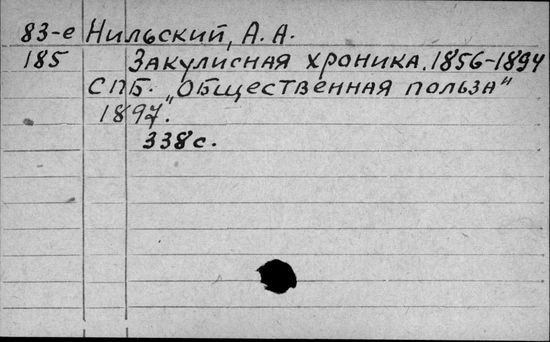 83-е Нильский, А. А.
185 Закулисная хроника. 1856-1894
СПБ. „Общественная польза"
1897.
338 с.